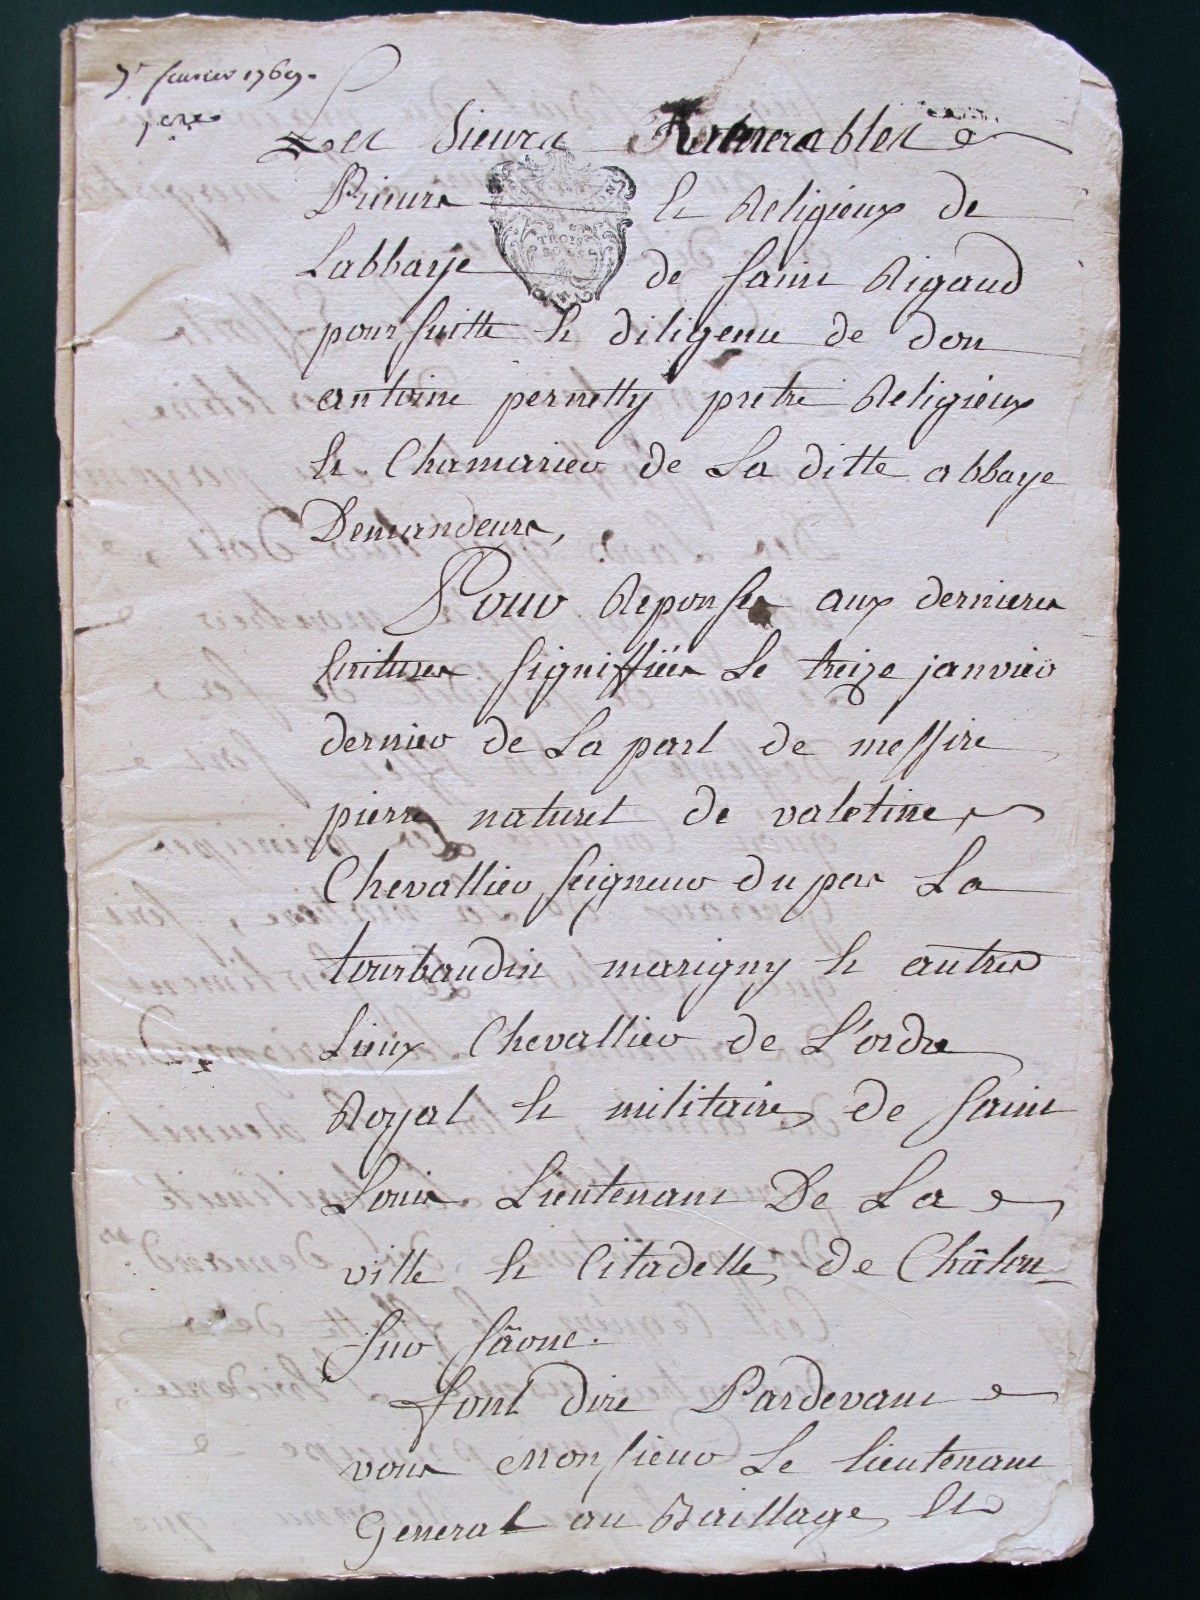 fevrier 1769.
Les Sieurs Venerables
Prieurs & Religieux de
Labbaye de Saint Rigaud
TROIS
SOLS
poursuitte & diligence de don
antoine pernetty pretre Religieux
& Chamarier de La ditte abbaye
Demandeurs,
Pour Reponses aux dernieres
Ecritures signiffiées Le treize janvier
dernier de La part de messire
pierre naturel de valetine
Chevallier seigneur du pers La
tourbaudin marigny & autres
Lieux Chevallier de L'ordre
Royal & militaire de saint
Louis Lieutenant De La
ville & Citadelle de Châlon
sur sâone.
font dire Pardevant
vous Monsieur Le lieutenant
General au Baillage Et